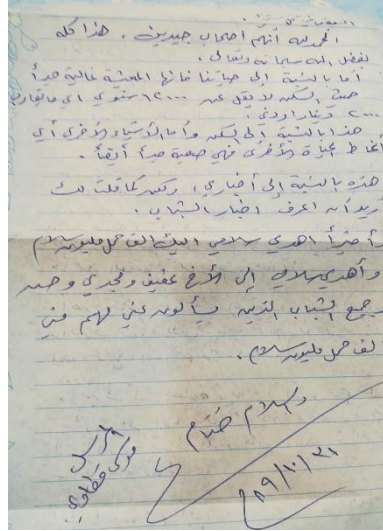 الحمد لله أنهم أصحاب جيدين . هذا كله
بفضل الله سبحانه وتعالى .
أما بالنسبة إلى حياتنا فانها المعيشة غالية جداً
حيث السكن لا يقل عن ١٢٠٠٠ سنوي أي ما يقارب
٢٠٠٠ دينار أردني .
هذا بالنسبة الى السكن وأما الأشياء الأخرى أي
أنماط الحياة الأخرى فهي صعبة جداً أيضاً .
هذه بالنسبة إلى أخباري ، ولكن كما قلت لك
أريد أن اعرف اخبار الشباب .
وأخيراً أهدي سلامي اليك الف حمل مليون سلام
و أهدي سلامي إلى الأخ عفيف ومجدي و
وجميع الشباب الذين يسألون عني لهم مني
الف حمل مليون سلام .
والسلام ختام
٨٩/١٠/٣١